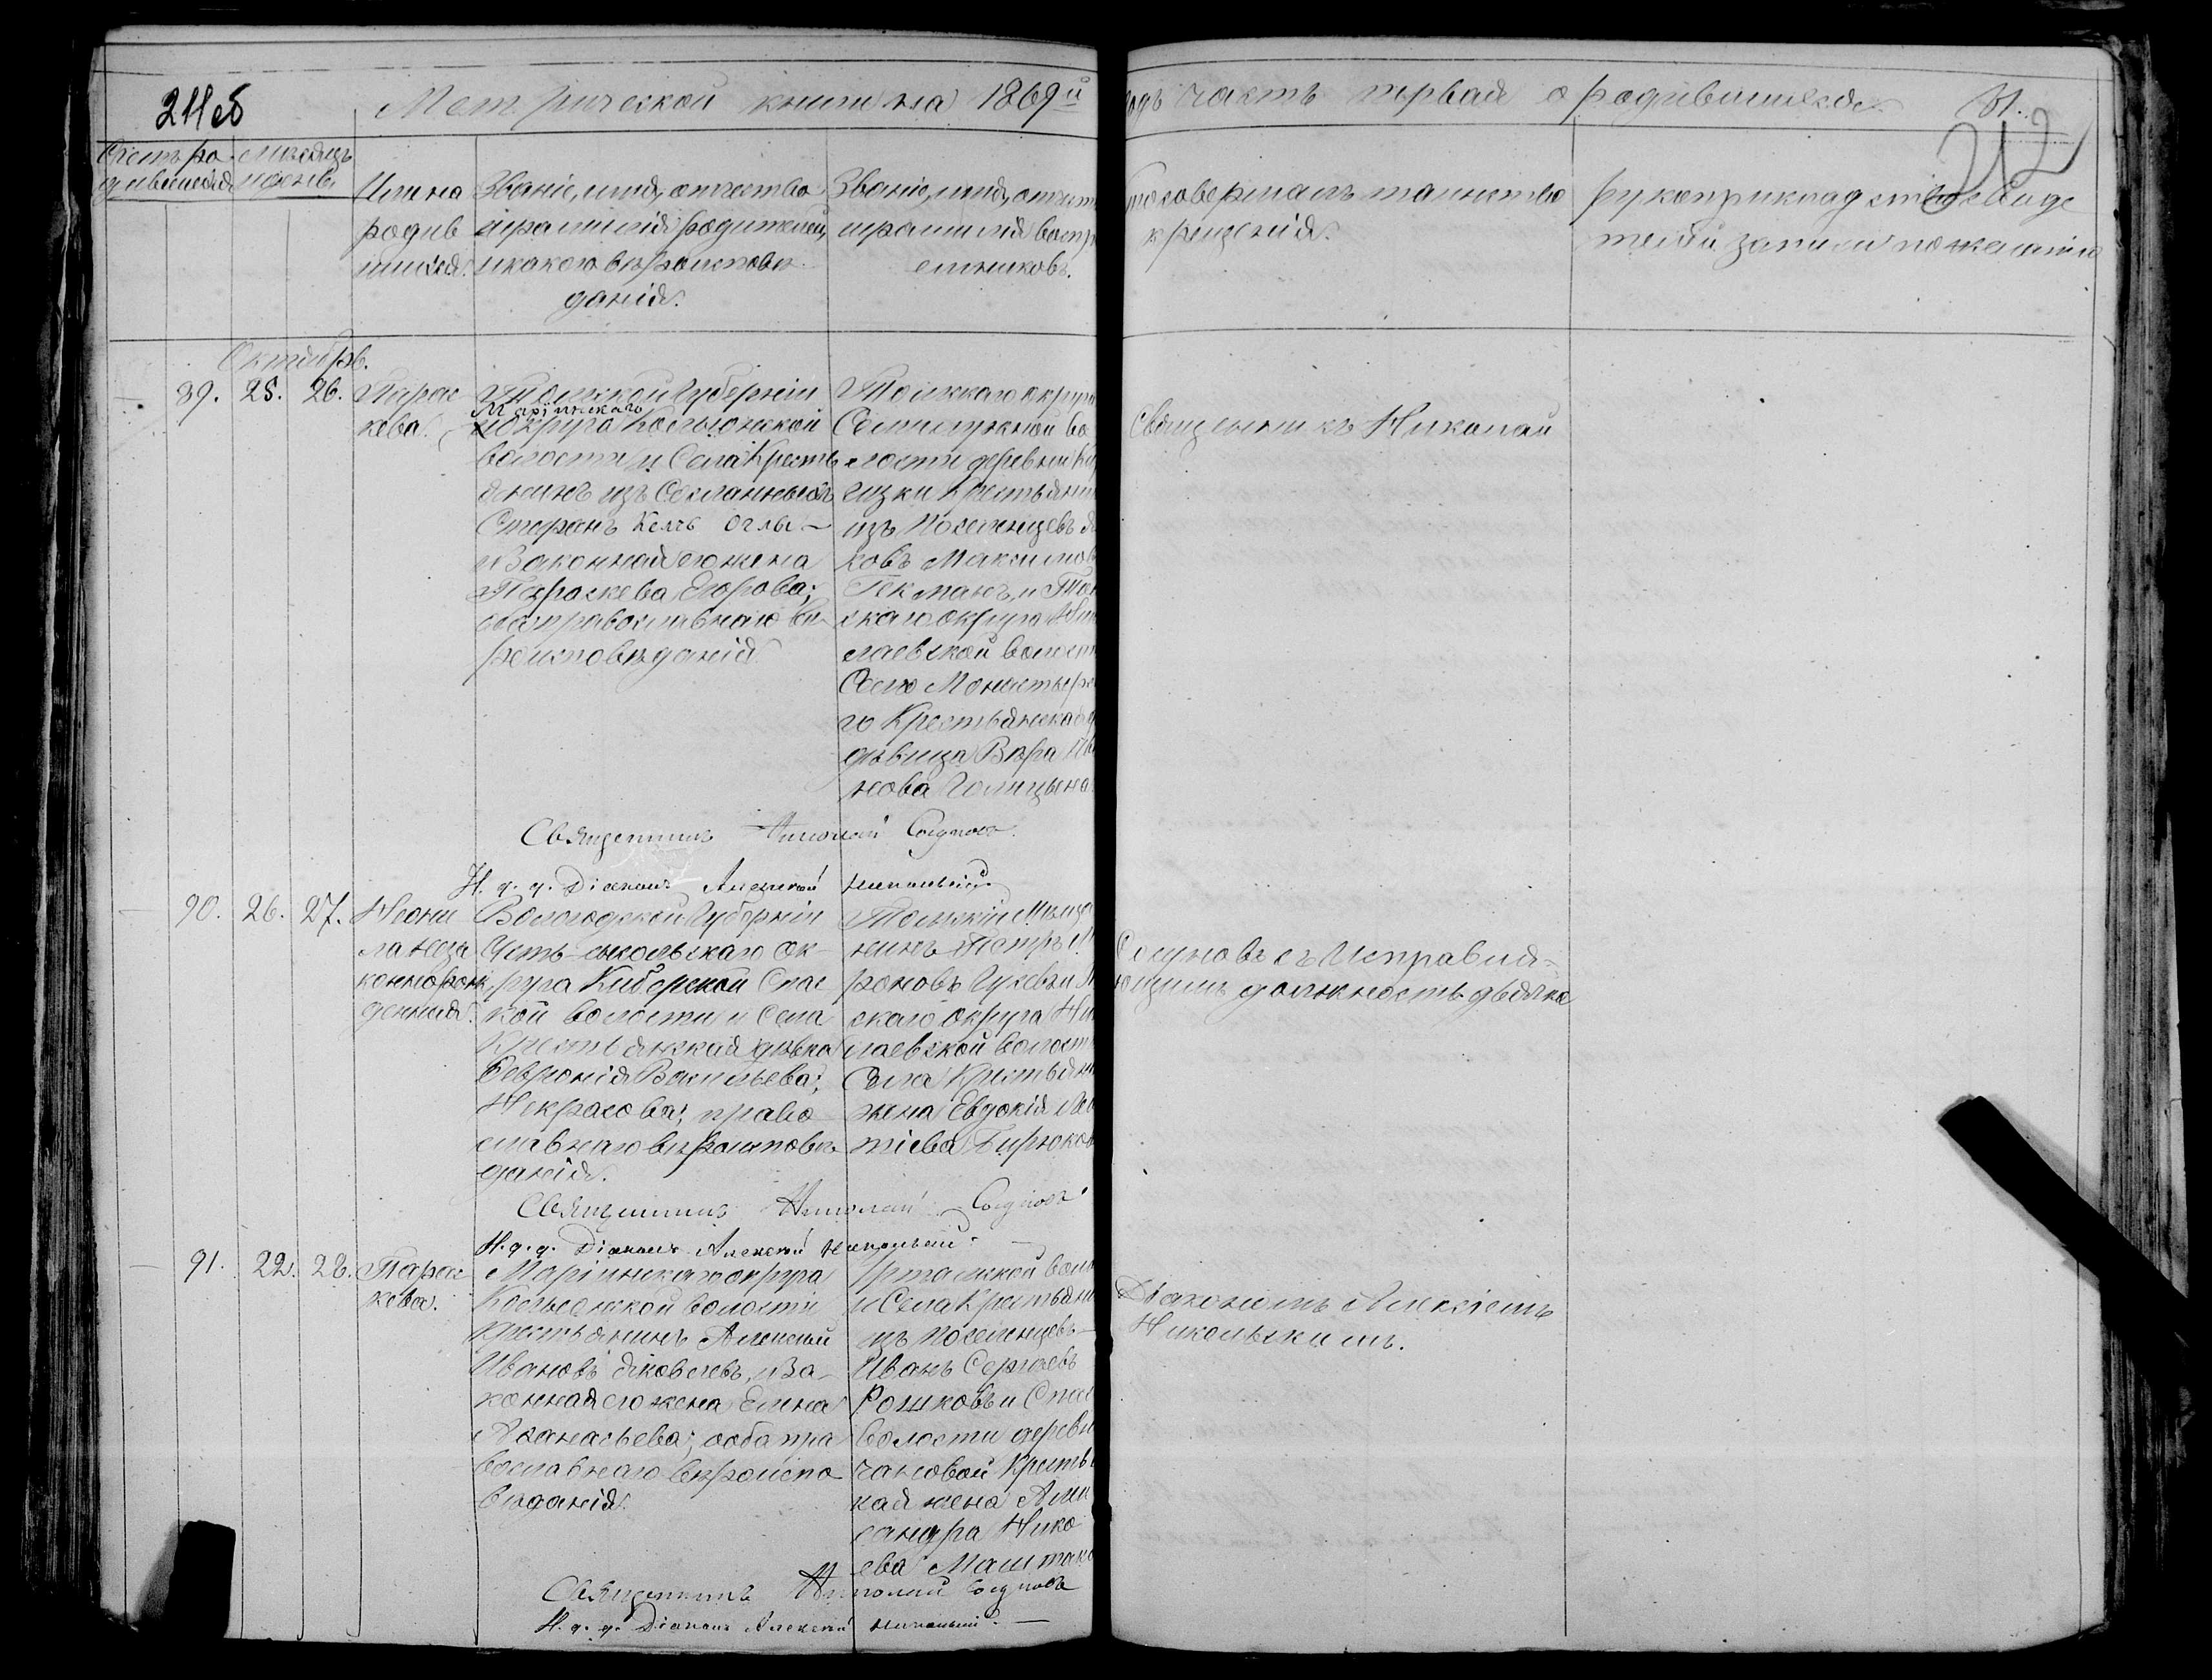 211 об
Метрической книги на 1869й
годъ часть первая о родившихся.
31.
212
Счетъ ро
дившихся
Месяцъ
и день.
Имена
родив
шихся.
Званіе, имя, отчество
и фамилія родителей,
и какого вѣроисповѣ
данія.
Званіе, имя, отчест
и фамилія воспрі
емниковъ.
Кто совершалъ таинство
крещенія.
Рукоприкладство свиде
телей записи по желанію
Октябрь.
89. 25. 26. Парас
кева.
Томской Губерніи
Маріинскаго
округа Колыонской
волости и Села Кресть
янинъ изъ Ссыланныхъ
Стефанъ Келъ Оглы
и Законная его жена
Параскева Егорова;
оба православнаго вѣ
роисповѣданія
Томскаго округа
Семилужной во
лости деревни
изъ Поселенцевъ
ковъ Максимов
Гекманъ, и Том
скаго округа Ни
лаевской волост
Село Монастырс
го Крестьянская
дѣвица Вѣра Ив
нова Голицына
Священникъ Николай
Священникъ Николай Соднов
И. д. д. Діаконъ Алексей Никольскій
90. 26. 27. Неони
ла неза
коннорож
денная.
Вологодской Губерніи
Усть-сысольскаго Ок-
руга Киборской Спас
кой волости и Села
Крестьянская дѣвка
Февронія Васильева;
Некрасова; право
славнаго вѣроисповѣ
данія.
Томскій Мѣща
нинъ Петръ М
роновъ Гусевъ и
скаго округа Ни
лаевской волост
Села Крестьянс
жена Евдокія Ле
тіева Бирюков
Содновъ съ Исправля-
ющимъ должность дьячка
Священникъ Николай Соднов
И. д. д. Діаконъ Алексей Никольскій
91. 22. 28. Парас
кева.
Маріинскаго округа
Колыонской волости
Крестьянинъ Алексей
Ивановъ Яковлевъ, и За
конная его жена Елена
Афанасьева; оба пра
вославнаго вѣроиспо
вѣданія.
Ишимской воло
и Села Крестьяни
изъ поселенцевъ
Иванъ Сергеевъ
Рошковъ и Спас
волости деревн
чановой Крестья
кая жена Алек
сандра Нико
ева Маштако
Діакономъ Алексіемъ
Никольскимъ.
Священникъ Николай Соднов
И. д. д. Діаконъ Алексей Никольскій